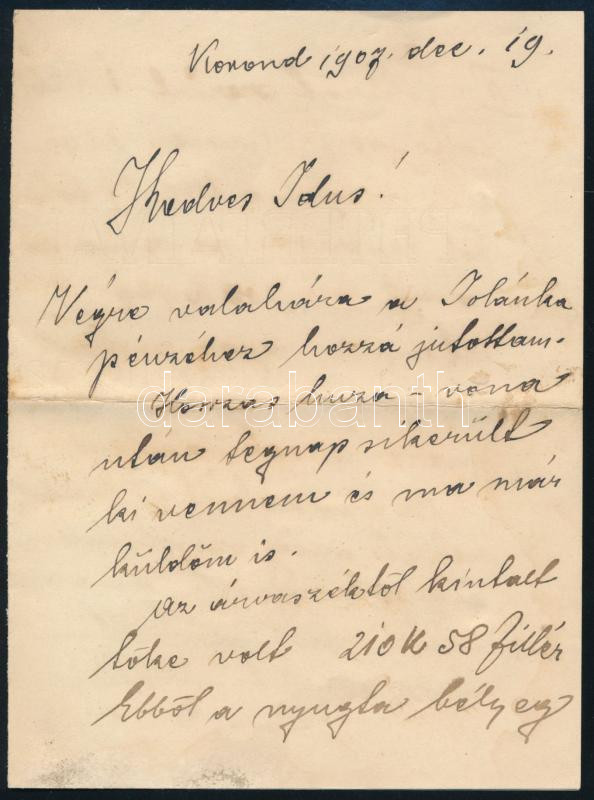 Korond 1907. dec. 19.
Kedves Idus!
Végre valahára a Jolánka
pénzéhez hozzá jutottam.
Hosszas huza-vona
után tegnap sikerült
ki vennem és ma már
küldöm is.
Az árvaszéktől kiutalt
tőke volt 210 K 58 fillér
Ebből a nyugta bélyeg
darabanth.com